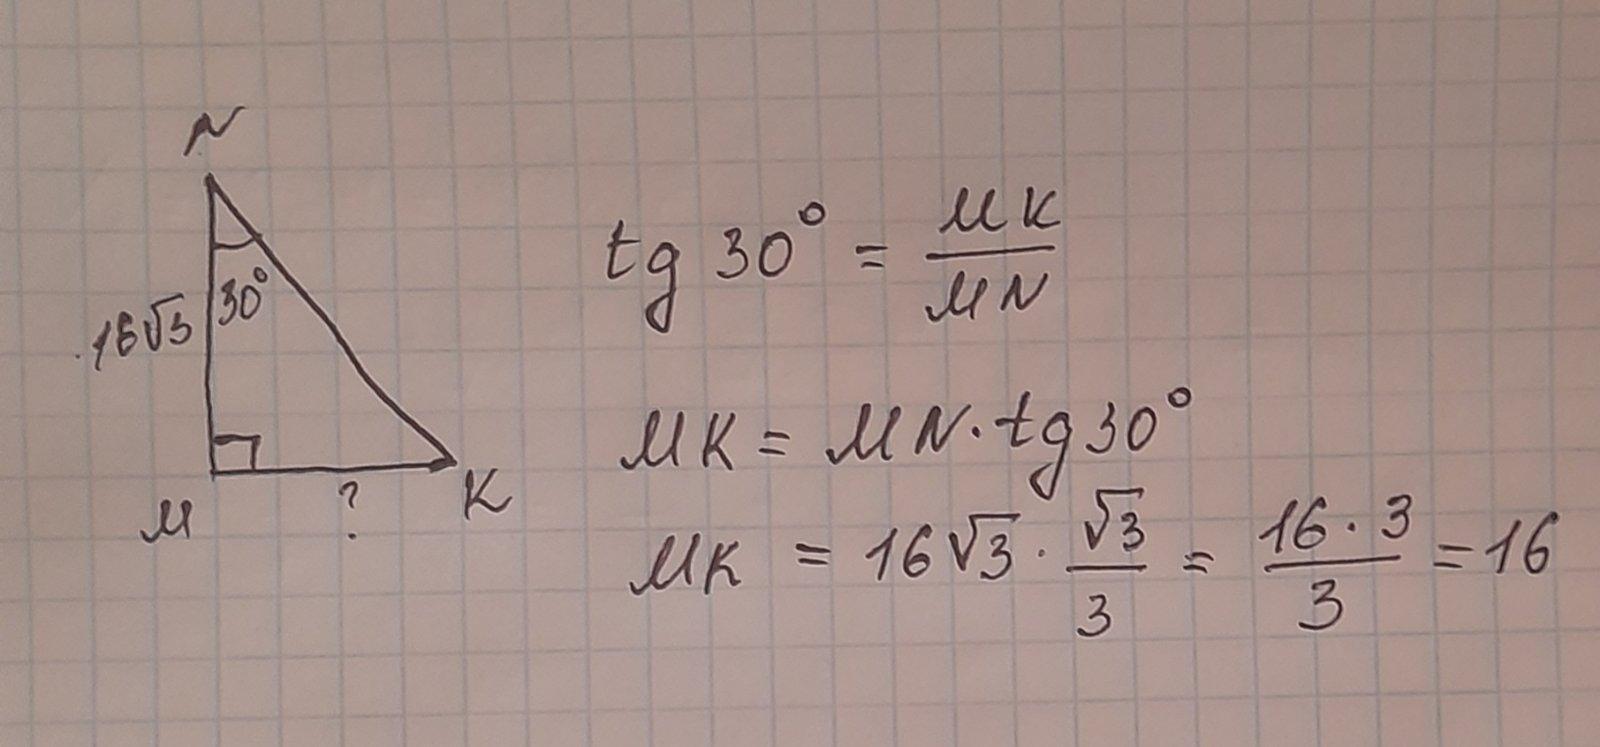 N
16√3
30°
M
?
K
tg 30° = MK/MN
MK = MN · tg 30°
MK = 16√3 · √3/3 = 16 · 3/3 = 16